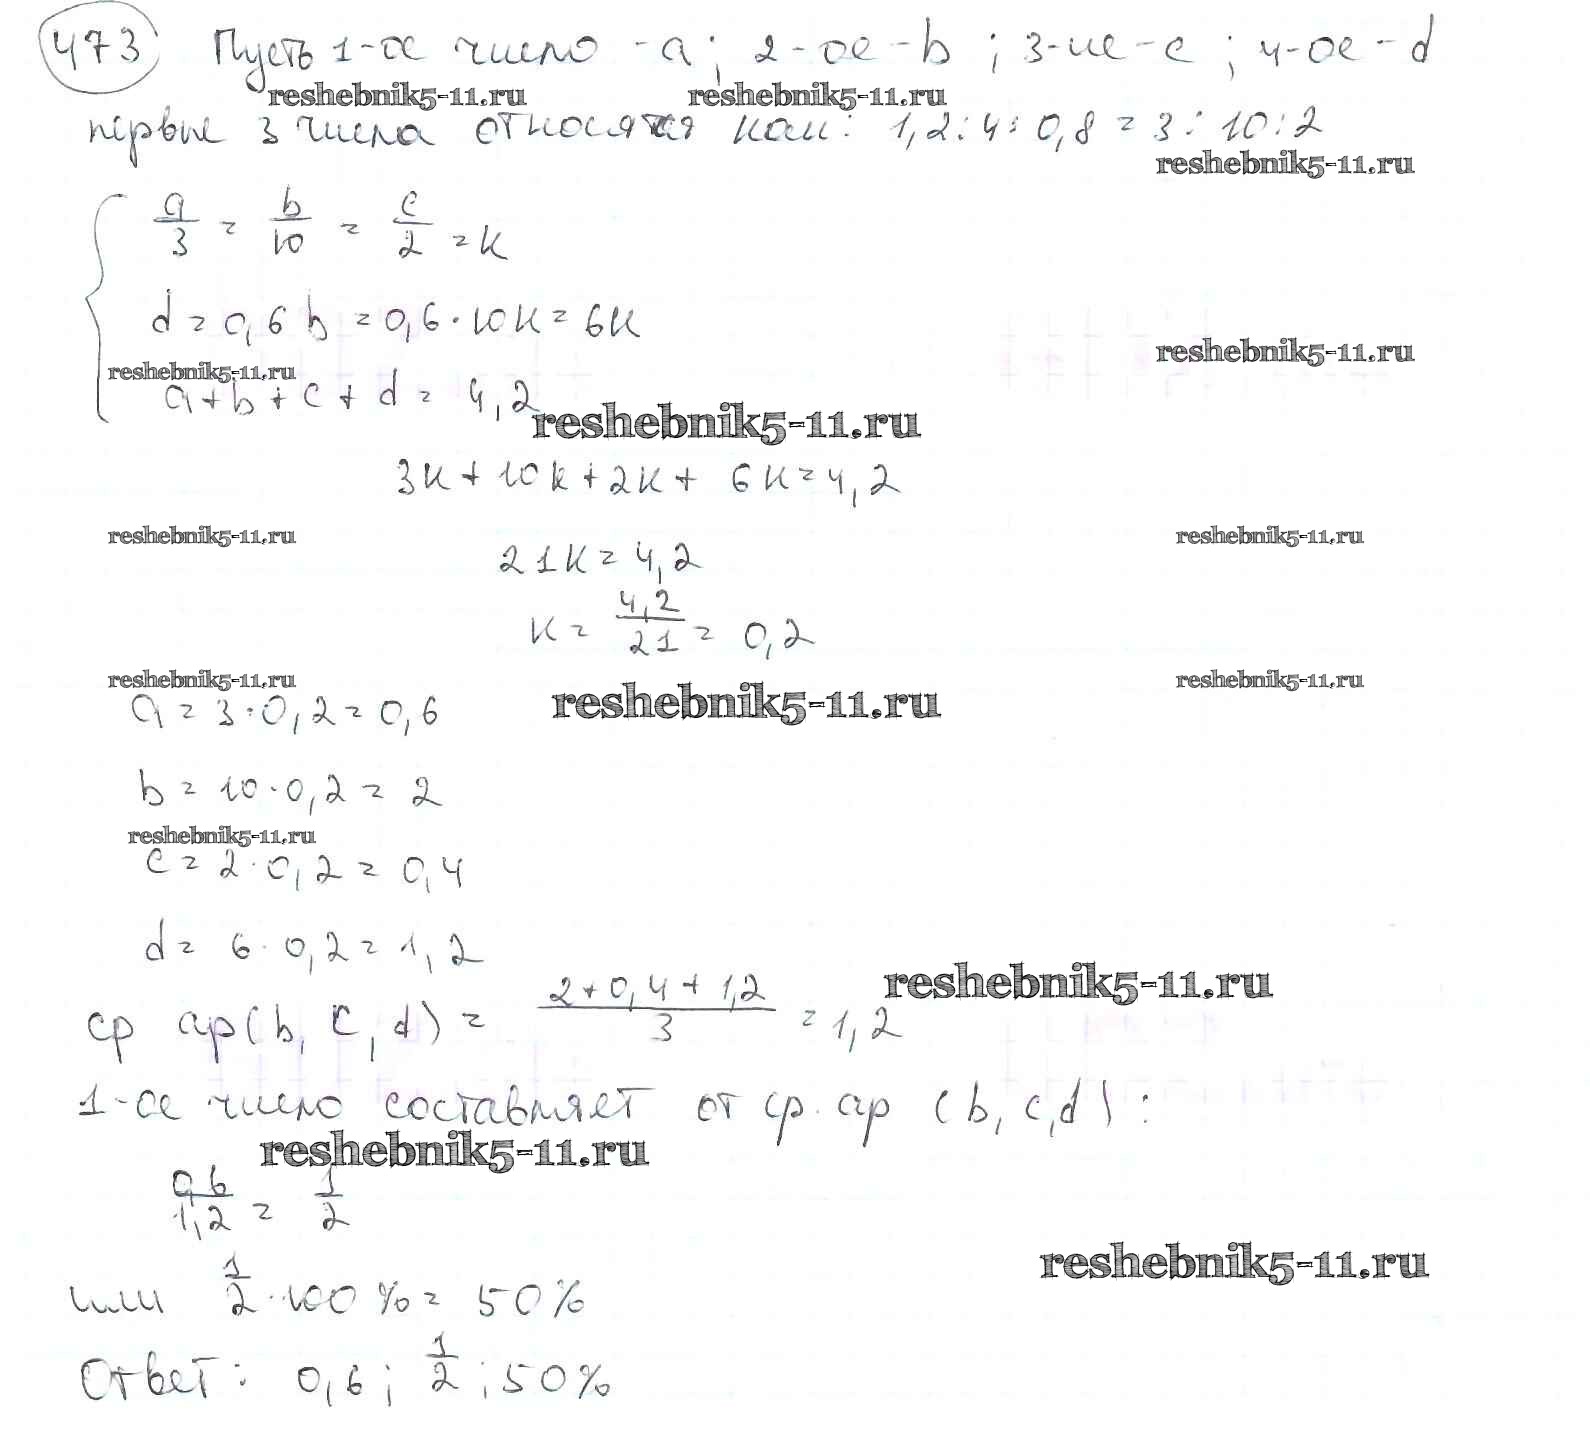 473 Пусть 1-ое число - a; 2-ое - b; 3-ие - c; 4-ое - d
reshebnik5-11.ru reshebnik5-11.ru
первые 3 числа относятся как: 1,2 : 4 : 0,8 = 3 : 10 : 2
reshebnik5-11.ru
a/3 = b/10 = c/2 = k
d = 0,6 b = 0,6 · 10k = 6k
reshebnik5-11.ru
reshebnik5-11.ru
a + b + c + d = 4,2
reshebnik5-11.ru
3k + 10k + 2k + 6k = 4,2
reshebnik5-11.ru reshebnik5-11.ru
21k = 4,2
k = 4,2/21 = 0,2
reshebnik5-11.ru reshebnik5-11.ru reshebnik5-11.ru
a = 3 · 0,2 = 0,6
b = 10 · 0,2 = 2
reshebnik5-11.ru
c = 2 · 0,2 = 0,4
d = 6 · 0,2 = 1,2
reshebnik5-11.ru
ср ар(b, c, d) = (2 + 0,4 + 1,2)/3 = 1,2
1-ое число составляет от ср. ар (b, c, d):
reshebnik5-11.ru
0,6/1,2 = 1/2
reshebnik5-11.ru
или 1/2 · 100% = 50%
Ответ: 0,6; 1/2; 50%